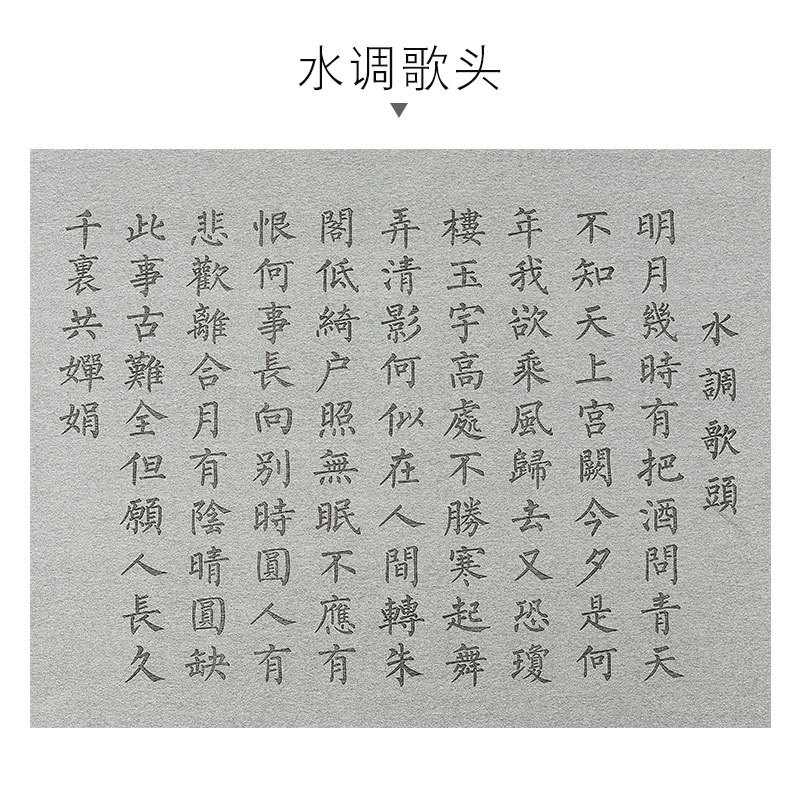 水调歌头
水調歌頭
明月幾時有把酒問青天
不知天上宮闕今夕是何
年我欲乘風歸去又恐瓊
樓玉宇高處不勝寒起舞
弄清影何似在人間轉朱
閣低綺户照無眠不應有
恨何事長向别時圓人有
悲歡離合月有陰晴圓缺
此事古難全但願人長久
千裏共嬋娟